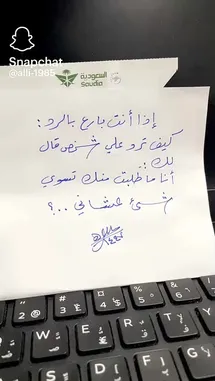 Snapchat
@alfi-1985
السعودية
Saudia
إذا أنت بارع بالرد :
كيف ترد على شخص قال
لك :
أنا ما طلبت منك تسوي
شيء عشاني ..؟